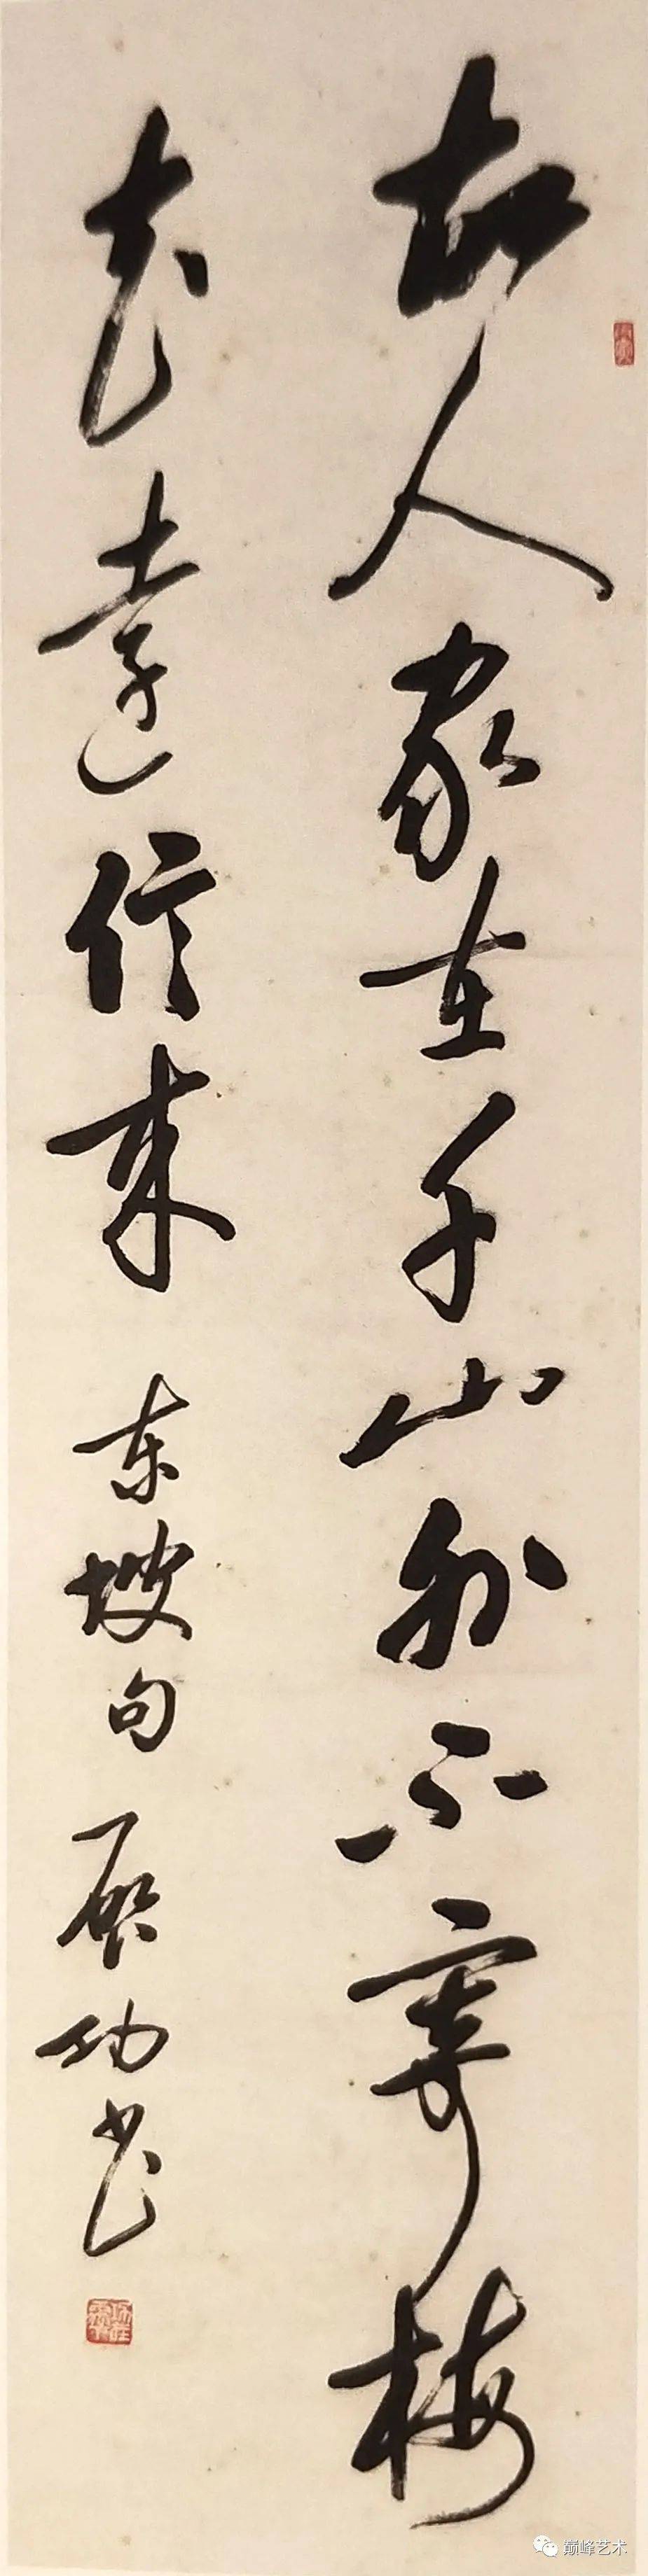 故人家在千山外不寄梅
花远信来 东坡句 启功书
巅峰艺术